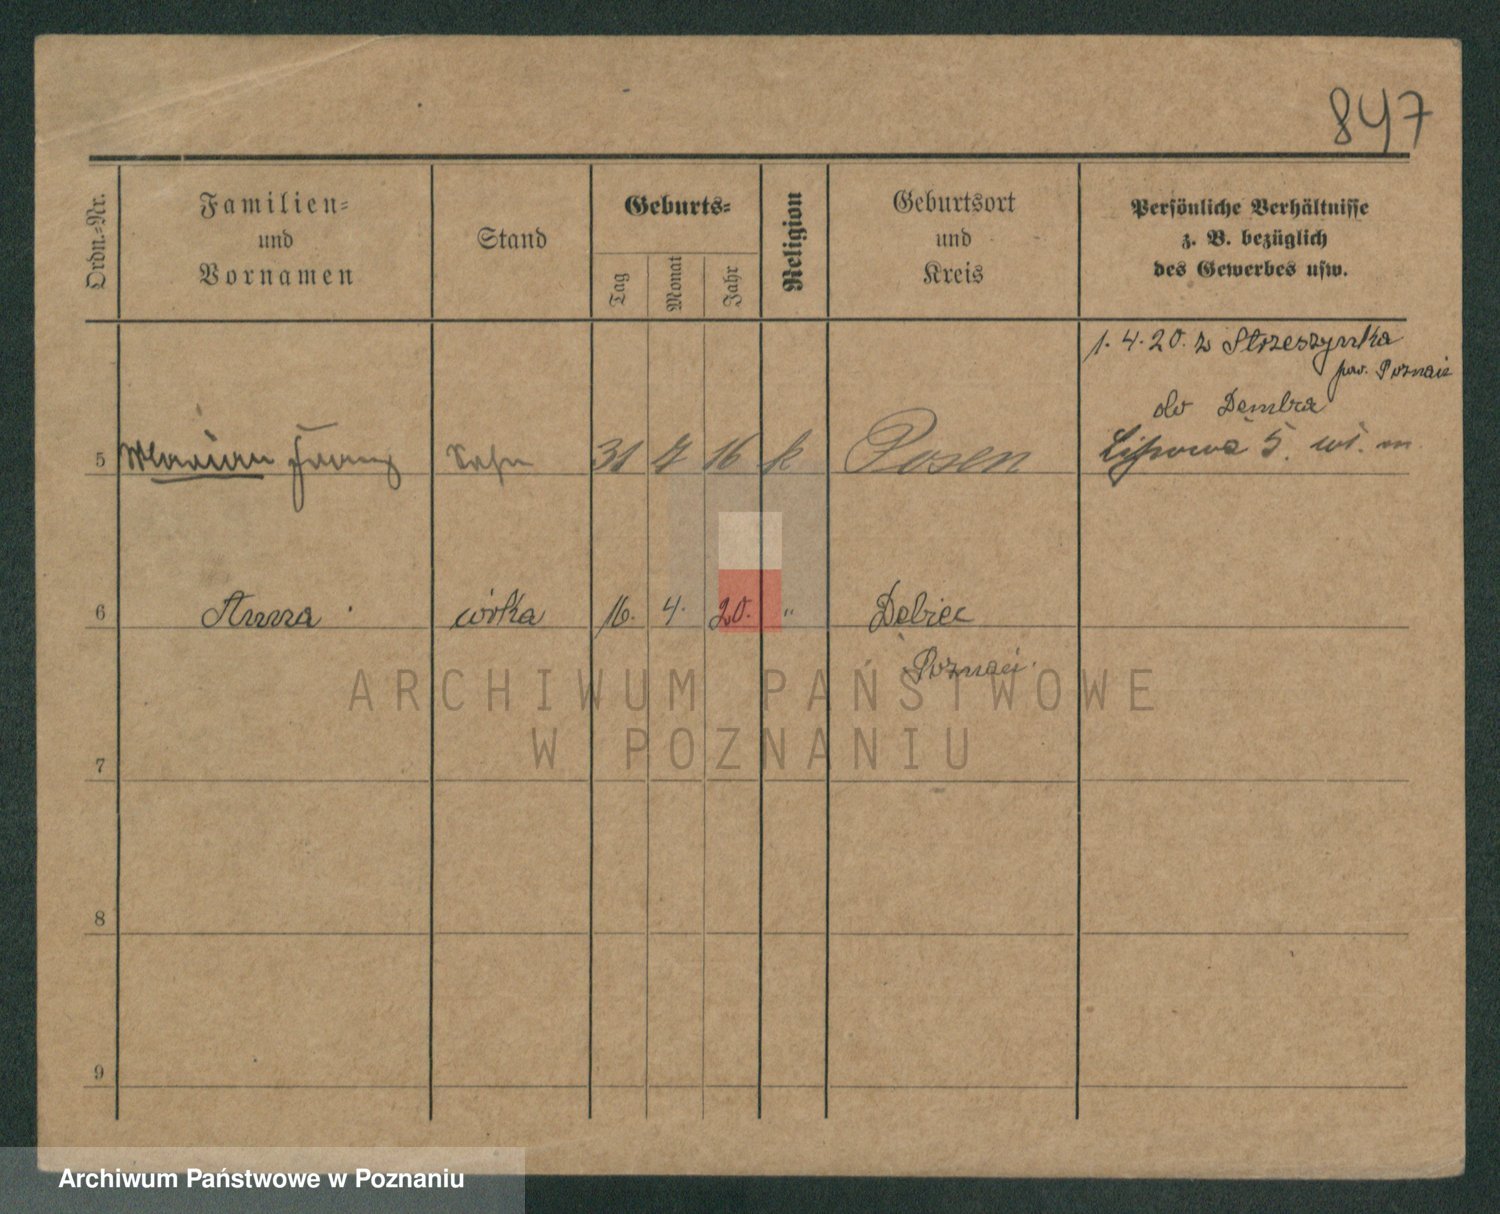 847
Ordn.=Nr.
Familien=
und
Vornamen
Stand
Geburts=
Tag
Monat
Jahr
Religion
Geburtsort
und
Kreis
Persönliche Verhältnisse
z. B. bezüglich
des Gewerbes usw.
1. 4. 20. z Strzeszynka
pow. Poznań
do Dembca
5 Marian Franz Sohn 31 7 16 k Posen Lipowa 5. wł. m
6 Anna córka 16. 4. 20. " Dębiec
Poznań
ARCHIWUM PAŃSTWOWE
W POZNANIU
7
8
9
Archiwum Państwowe w Poznaniu